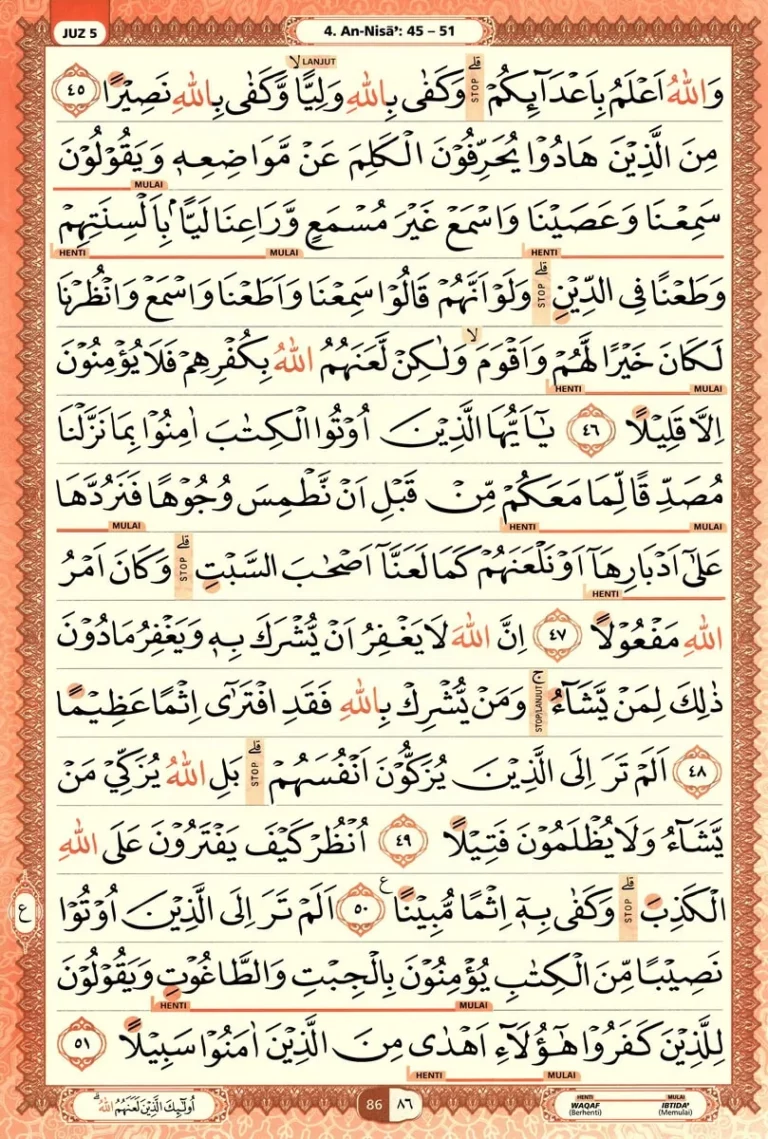 JUZ 5
4. An-Nisā': 45 – 51
لا LANJUT
وَاللّٰهُ اَعْلَمُ بِاَعْدَاۤىِٕكُمْ ۗ قلى STOP وَكَفٰى بِاللّٰهِ وَلِيًّا وَّكَفٰى بِاللّٰهِ نَصِيْرًا ٤٥
مِنَ الَّذِيْنَ هَادُوْا يُحَرِّفُوْنَ الْكَلِمَ عَنْ مَّوَاضِعِهٖ وَيَقُوْلُوْنَ
MULAI
سَمِعْنَا وَعَصَيْنَا وَاسْمَعْ غَيْرَ مُسْمَعٍ وَّرَاعِنَا لَيًّاۢ بِاَلْسِنَتِهِمْ
HENTI MULAI HENTI
وَطَعْنًا فِى الدِّيْنِ قلى STOP وَلَوْ اَنَّهُمْ قَالُوْا سَمِعْنَا وَاَطَعْنَا وَاسْمَعْ وَانْظُرْنَا
لَكَانَ خَيْرًا لَّهُمْ وَاَقْوَمَ لا وَلٰكِنْ لَّعَنَهُمُ اللّٰهُ بِكُفْرِهِمْ فَلَا يُؤْمِنُوْنَ
MULAI HENTI
اِلَّا قَلِيْلًا ٤٦ يٰٓاَيُّهَا الَّذِيْنَ اُوْتُوا الْكِتٰبَ اٰمِنُوْا بِمَا نَزَّلْنَا
مُصَدِّقًا لِّمَا مَعَكُمْ مِّنْ قَبْلِ اَنْ نَّطْمِسَ وُجُوْهًا فَنَرُدَّهَا
MULAI HENTI MULAI
عَلٰٓى اَدْبَارِهَآ اَوْ نَلْعَنَهُمْ كَمَا لَعَنَّآ اَصْحٰبَ السَّبْتِ قلى STOP وَكَانَ اَمْرُ
HENTI
اللّٰهِ مَفْعُوْلًا ٤٧ اِنَّ اللّٰهَ لَا يَغْفِرُ اَنْ يُّشْرَكَ بِهٖ وَيَغْفِرُ مَا دُوْنَ
ذٰلِكَ لِمَنْ يَّشَاۤءُ ج STOP/LANJUT وَمَنْ يُّشْرِكْ بِاللّٰهِ فَقَدِ افْتَرٰٓى اِثْمًا عَظِيْمًا
٤٨ اَلَمْ تَرَ اِلَى الَّذِيْنَ يُزَكُّوْنَ اَنْفُسَهُمْ قلى STOP بَلِ اللّٰهُ يُزَكِّيْ مَنْ
يَّشَاۤءُ وَلَا يُظْلَمُوْنَ فَتِيْلًا ٤٩ اُنْظُرْ كَيْفَ يَفْتَرُوْنَ عَلَى اللّٰهِ
الْكَذِبَ قلى STOP وَكَفٰى بِهٖٓ اِثْمًا مُّبِيْنًا ع ٥٠ اَلَمْ تَرَ اِلَى الَّذِيْنَ اُوْتُوْا
ع
نَصِيْبًا مِّنَ الْكِتٰبِ يُؤْمِنُوْنَ بِالْجِبْتِ وَالطَّاغُوْتِ وَيَقُوْلُوْنَ
MULAI HENTI
لِلَّذِيْنَ كَفَرُوْا هٰٓؤُلَاۤءِ اَهْدٰى مِنَ الَّذِيْنَ اٰمَنُوْا سَبِيْلًا ٥١
MULAI HENTI
اُولٰۤىِٕكَ الَّذِيْنَ لَعَنَهُمُ اللّٰهُ
86 ٨٦
HENTI MULAI
WAQAF IBTIDA'
(Berhenti) (Memulai)